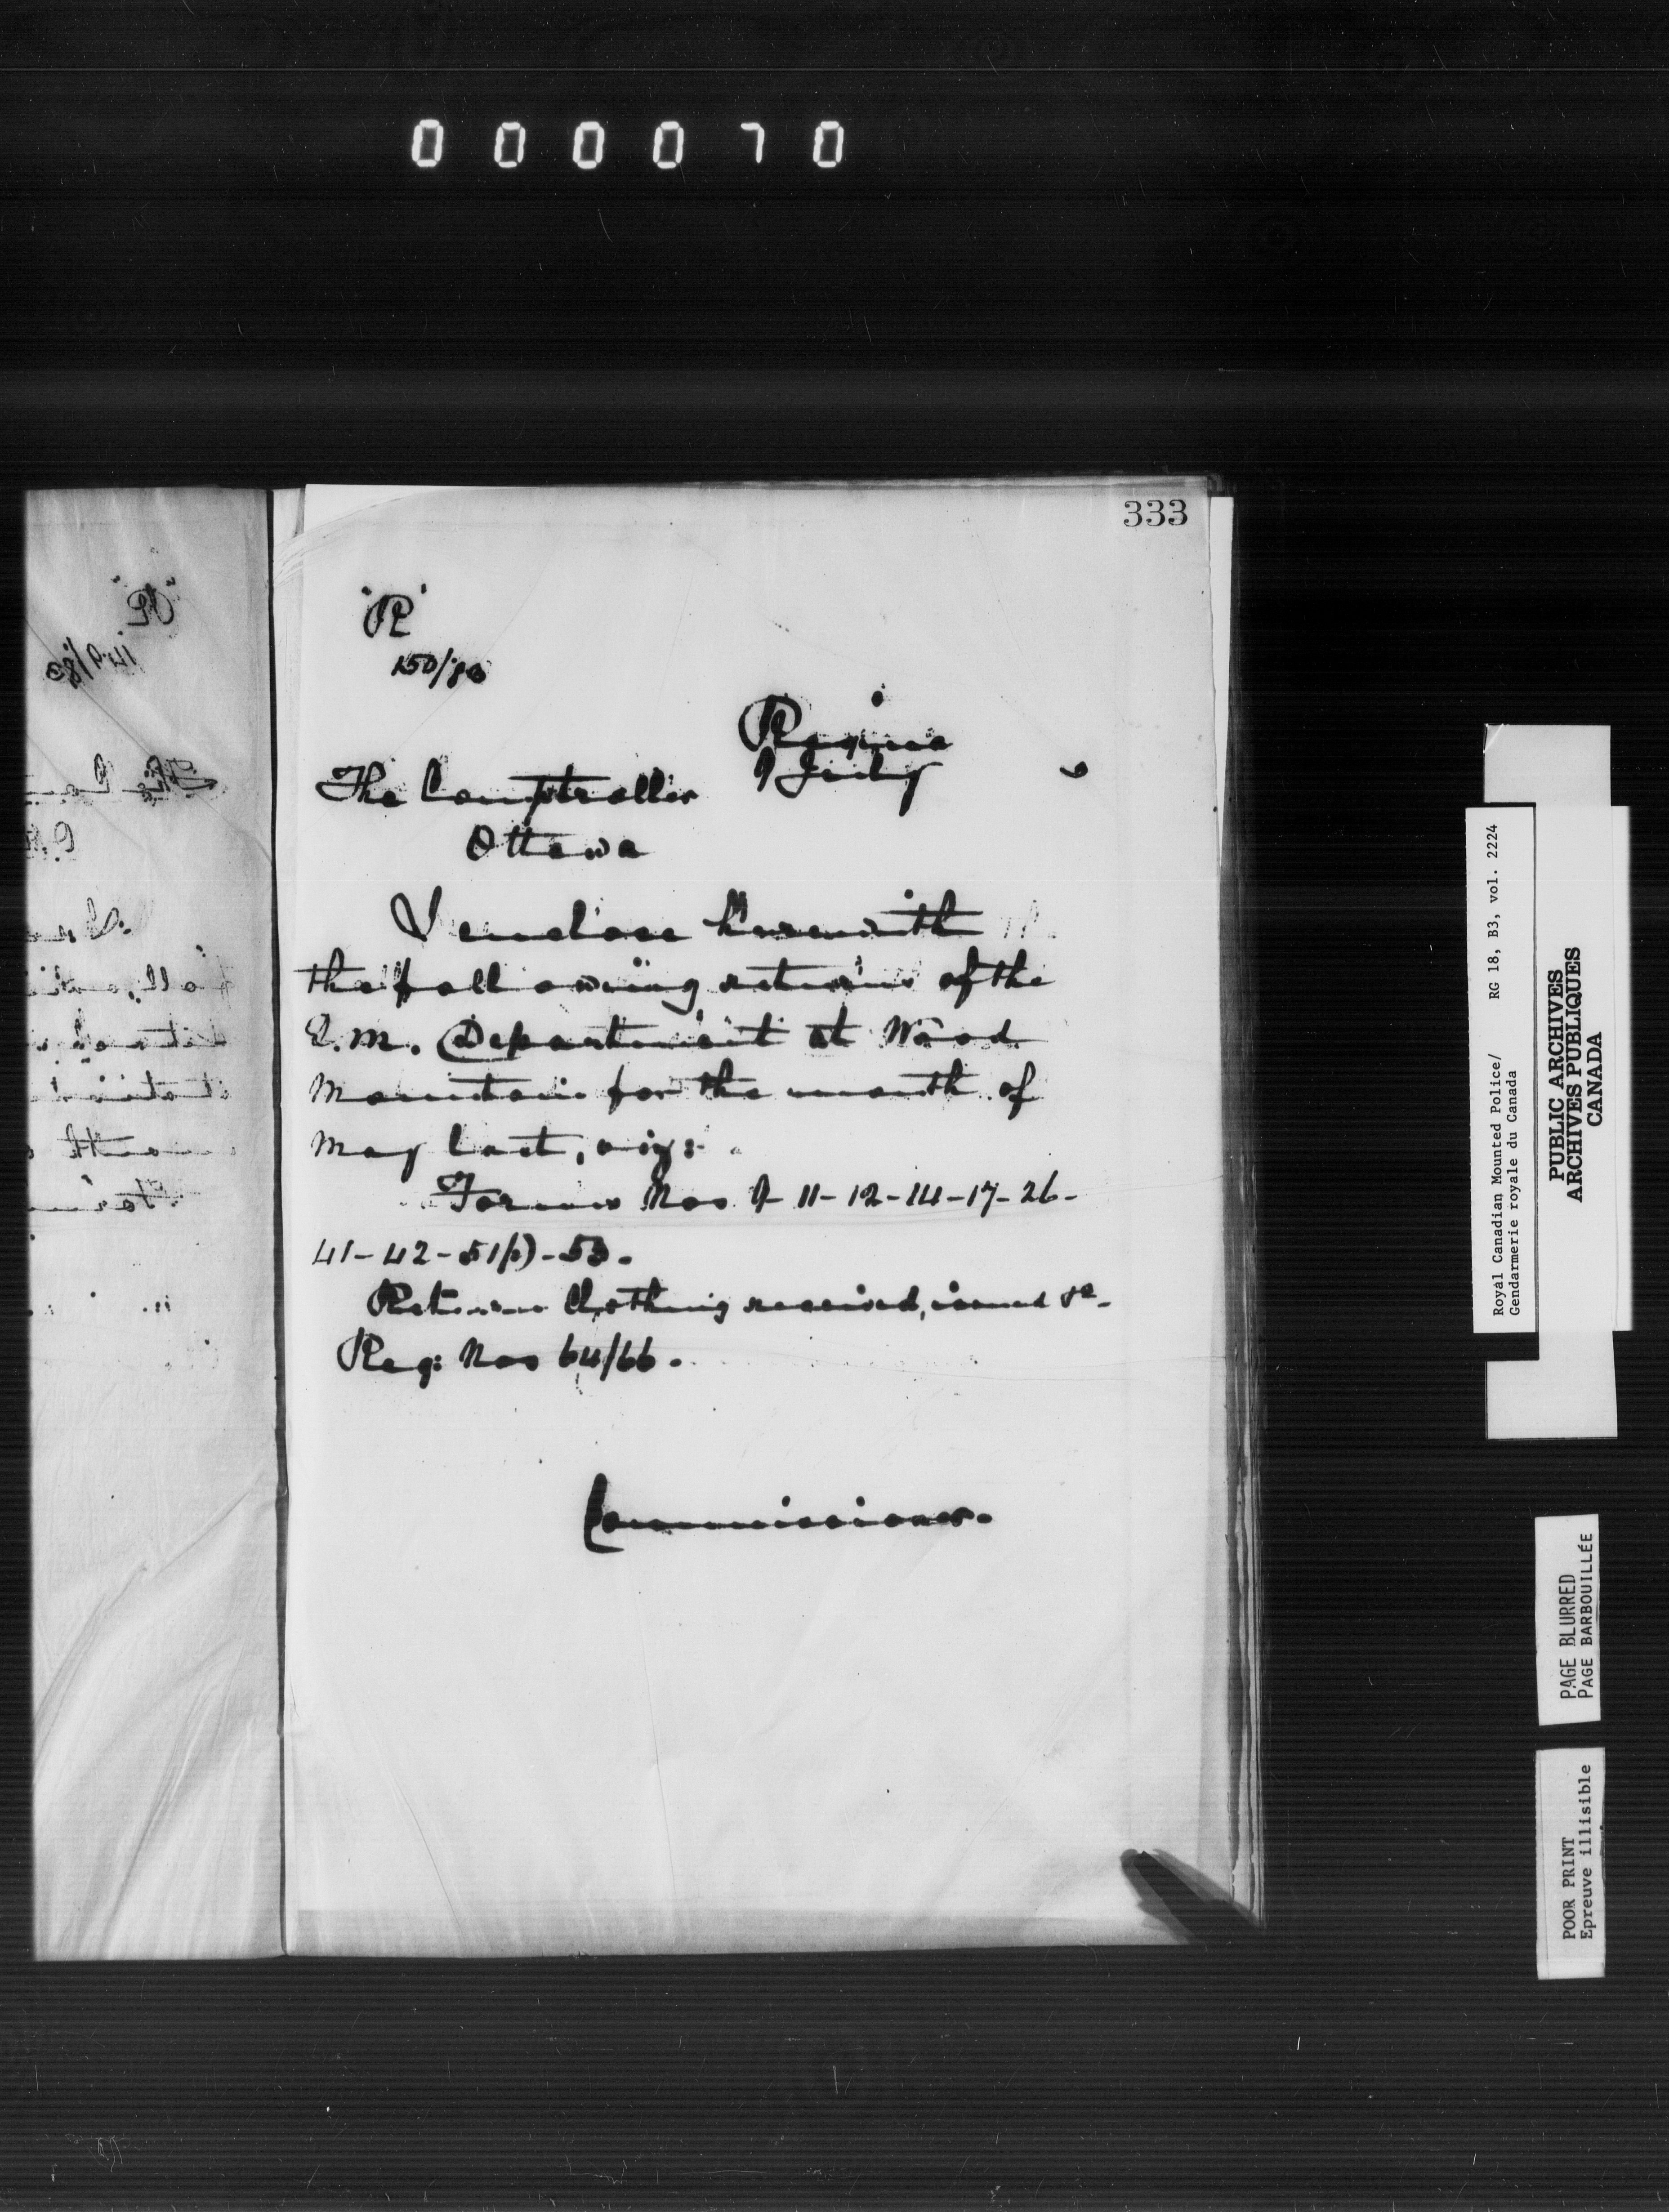 000070
333
"R"
150/83
Regina
9 July
The Comptroller
Ottawa
I enclose herewith
the following returns of the
Q.M. Department at Wood
Mountain for the month of
May last, viz:-
Forms Nos 9-11-12-14-17-26-
41-42-51(2)-53.
Return Clothing received, issued &c.
Reg: Nos 64/66.
Commissioner.
Royal Canadian Mounted Police/ RG 18, B3, vol. 2224
Gendarmerie royale du Canada
PUBLIC ARCHIVES
ARCHIVES PUBLIQUES
CANADA
PAGE BLURRED
PAGE BARBOUILLÉE
POOR PRINT
Epreuve illisible